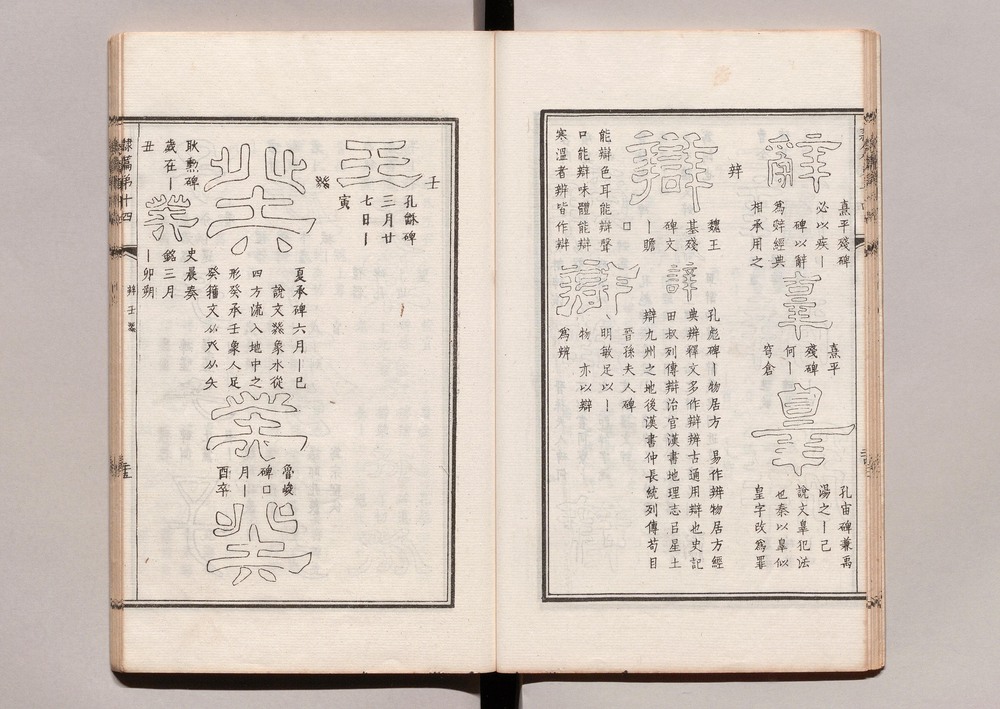 辭
熹平殘碑
必以疾丨
碑以辭
爲辤經典
相承用之
辜
熹平
殘碑
何丨
穹倉
辠
孔宙碑兼禹
湯之丨己
說文辠犯法
也秦以辠似
皇字改爲罪
辨
辯
魏王
基殘
碑文
丨贍
口
辯
孔彪碑丨物居方 易作辨物居方經
典辨釋文多作辯辨古通用辯也史記
田叔列傳辯治官漢書地理志㠯星土
辯九州之地後漢書仲長統列傳苟目
能辯色耳能辯聲
口能辯味體能辯
寒溫者辨皆作辯
辯
晉孫夫人碑
明敏足以丨
物 亦以辯
爲辨
壬
壬
孔龢碑
三月廿
七日丨
寅
癸
夏承碑六月丨巳
說文癸象水從
四方流入地中之
形癸承壬象人足
癸籒文从癶从矢
癸
魯峻
碑口
月丨
酉卒
癸
耿勳碑
歲在丨
丑
癸
史晨奏
銘三月
丨卯朔
隸篇第十四
辨壬癸